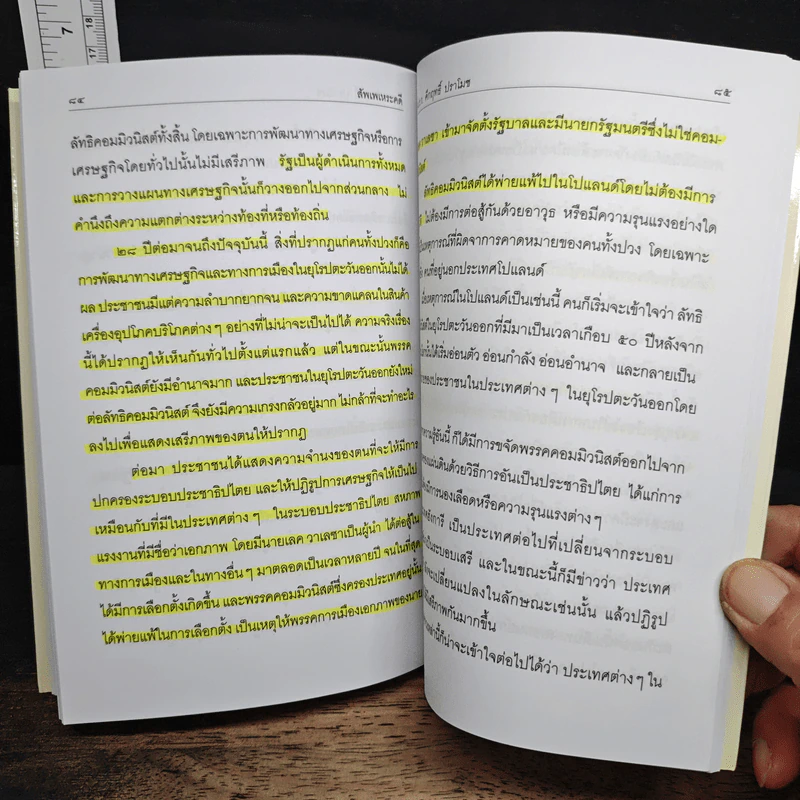 7
17
18
๘๔ สัพเพเหระคดี
ลัทธิคอมมิวนิสต์ทั้งสิ้น โดยเฉพาะการพัฒนาทางเศรษฐกิจหรือการ
เศรษฐกิจโดยทั่วไปนั้นไม่มีเสรีภาพ รัฐเป็นผู้ดำเนินการทั้งหมด
และการวางแผนทางเศรษฐกิจนั้นก็วางออกไปจากส่วนกลาง ไม่
คำนึงถึงความแตกต่างระหว่างท้องที่หรือท้องถิ่น
๒๘ ปีต่อมาจนถึงปัจจุบันนี้ สิ่งที่ปรากฏแก่คนทั้งปวงก็คือ
การพัฒนาทางเศรษฐกิจและทางการเมืองในยุโรปตะวันออกนั้นไม่ได้
ผล ประชาชนมีแต่ความลำบากยากจน และความขาดแคลนในสินค้า
เครื่องอุปโภคบริโภคต่างๆ อย่างที่ไม่น่าจะเป็นไปได้ ความจริงเรื่อง
นี้ได้ปรากฏให้เห็นกันทั่วไปตั้งแต่แรกแล้ว แต่ในขณะนั้นพรรค
คอมมิวนิสต์ยังมีอำนาจมาก และประชาชนในยุโรปตะวันออกยังใหม่
ต่อลัทธิคอมมิวนิสต์ จึงยังมีความเกรงกลัวอยู่มาก ไม่กล้าที่จะทำอะไร
ลงไปเพื่อแสดงเสรีภาพของตนให้ปรากฏ
ต่อมา ประชาชนได้แสดงความจำนงของตนที่จะให้มีการ
ปกครองระบอบประชาธิปไตย และให้ปฏิรูปการเศรษฐกิจให้เป็นไป
เหมือนกับที่มีในประเทศต่างๆ ในระบอบประชาธิปไตย สหภาพ
แรงงานที่มีชื่อว่าเอกภาพ โดยมีนายเลค วาเลซาเป็นผู้นำ ได้ต่อสู้ใน
ทางการเมืองและในทางอื่นๆ มาตลอดเป็นเวลาหลายปี จนในที่สุด
ได้มีการเลือกตั้งเกิดขึ้น และพรรคคอมมิวนิสต์ซึ่งครองประเทศอยู่นั้น
ได้พ่ายแพ้ในการเลือกตั้ง เป็นเหตุให้พรรคการเมืองเอกภาพของนาย
คึกฤทธิ์ ปราโมช ๘๕
วาเลซา เข้ามาจัดตั้งรัฐบาลและมีนายกรัฐมนตรีซึ่งไม่ใช่คอม-
ลัทธิคอมมิวนิสต์ได้พ่ายแพ้ไปในโปแลนด์โดยไม่ต้องมีการ
ไม่ต้องมีการต่อสู้กันด้วยอาวุธ หรือมีความรุนแรงอย่างใด
เหตุการณ์ที่ผิดจากการคาดหมายของคนทั้งปวง โดยเฉพาะ
คนที่อยู่นอกประเทศโปแลนด์
เหตุการณ์ในโปแลนด์เป็นเช่นนี้ คนก็เริ่มจะเข้าใจว่า ลัทธิ
ในยุโรปตะวันออกที่มีมาเป็นเวลาเกือบ ๕๐ ปีหลังจาก
ได้เริ่มอ่อนตัว อ่อนกำลัง อ่อนอำนาจ และกลายเป็น
ของประชาชนในประเทศต่าง ๆ ในยุโรปตะวันออกโดย
ความรู้อันนี้ ก็ได้มีการขจัดพรรคคอมมิวนิสต์ออกไปจาก
แผ่นดินด้วยวิธีการอันเป็นประชาธิปไตย ได้แก่การ
มีการนองเลือดหรือความรุนแรงต่าง ๆ
ฮังการี เป็นประเทศต่อไปที่เปลี่ยนจากระบอบ
เป็นระบอบเสรี และในขณะนี้ก็มีข่าวว่า ประเทศ
จะเปลี่ยนแปลงในลักษณะเช่นนั้น แล้วปฏิรูป
เสรีภาพกันมากขึ้น
เหล่านี้ก็น่าจะเข้าใจต่อไปได้ว่า ประเทศต่าง ๆ ใน